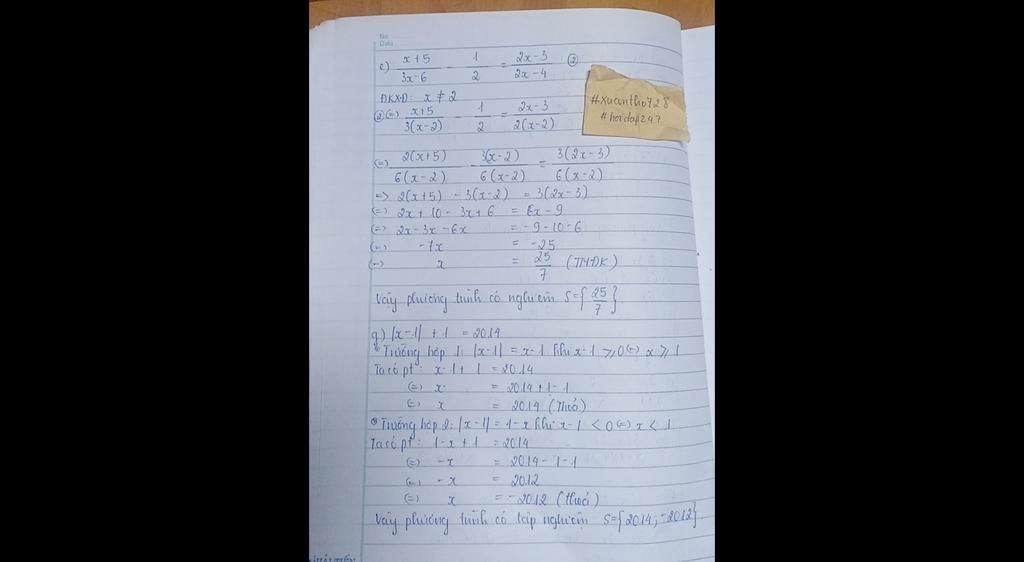 No.
Date
e) x+5/3x-6 - 1/2 = 2x-3/2x-4 (2)
ĐKXĐ: x ≠ 2
(2) (=) x+5/3(x-2) - 1/2 = 2x-3/2(x-2)
#xuantho728
#hoidap247
(=) 2(x+5)/6(x-2) - 3(x-2)/6(x-2) = 3(2x-3)/6(x-2)
=> 2(x+5) - 3(x-2) = 3(2x-3)
(=) 2x + 10 - 3x + 6 = 6x - 9
(=) 2x - 3x - 6x = -9 - 10 - 6
(=) -7x = -25
(=) x = 25/7 (TMĐK)
Vậy phương trình có nghiệm S={25/7}
g) |x-1| + 1 = 2014
Trường hợp 1: |x-1| = x-1 khi x-1 ⩾ 0 (=) x ⩾ 1
Ta có pt: x-1 + 1 = 2014
(=) x = 2014 + 1 - 1
(=) x = 2014 (Thoả)
Trường hợp 2: |x-1| = 1-x khi x-1 < 0 (=) x < 1
Ta có pt: 1-x + 1 = 2014
(=) -x = 2014 - 1 - 1
(=) -x = 2012
(=) x = -2012 (thoả)
Vậy phương trình có tập nghiệm S={2014; -2012}.